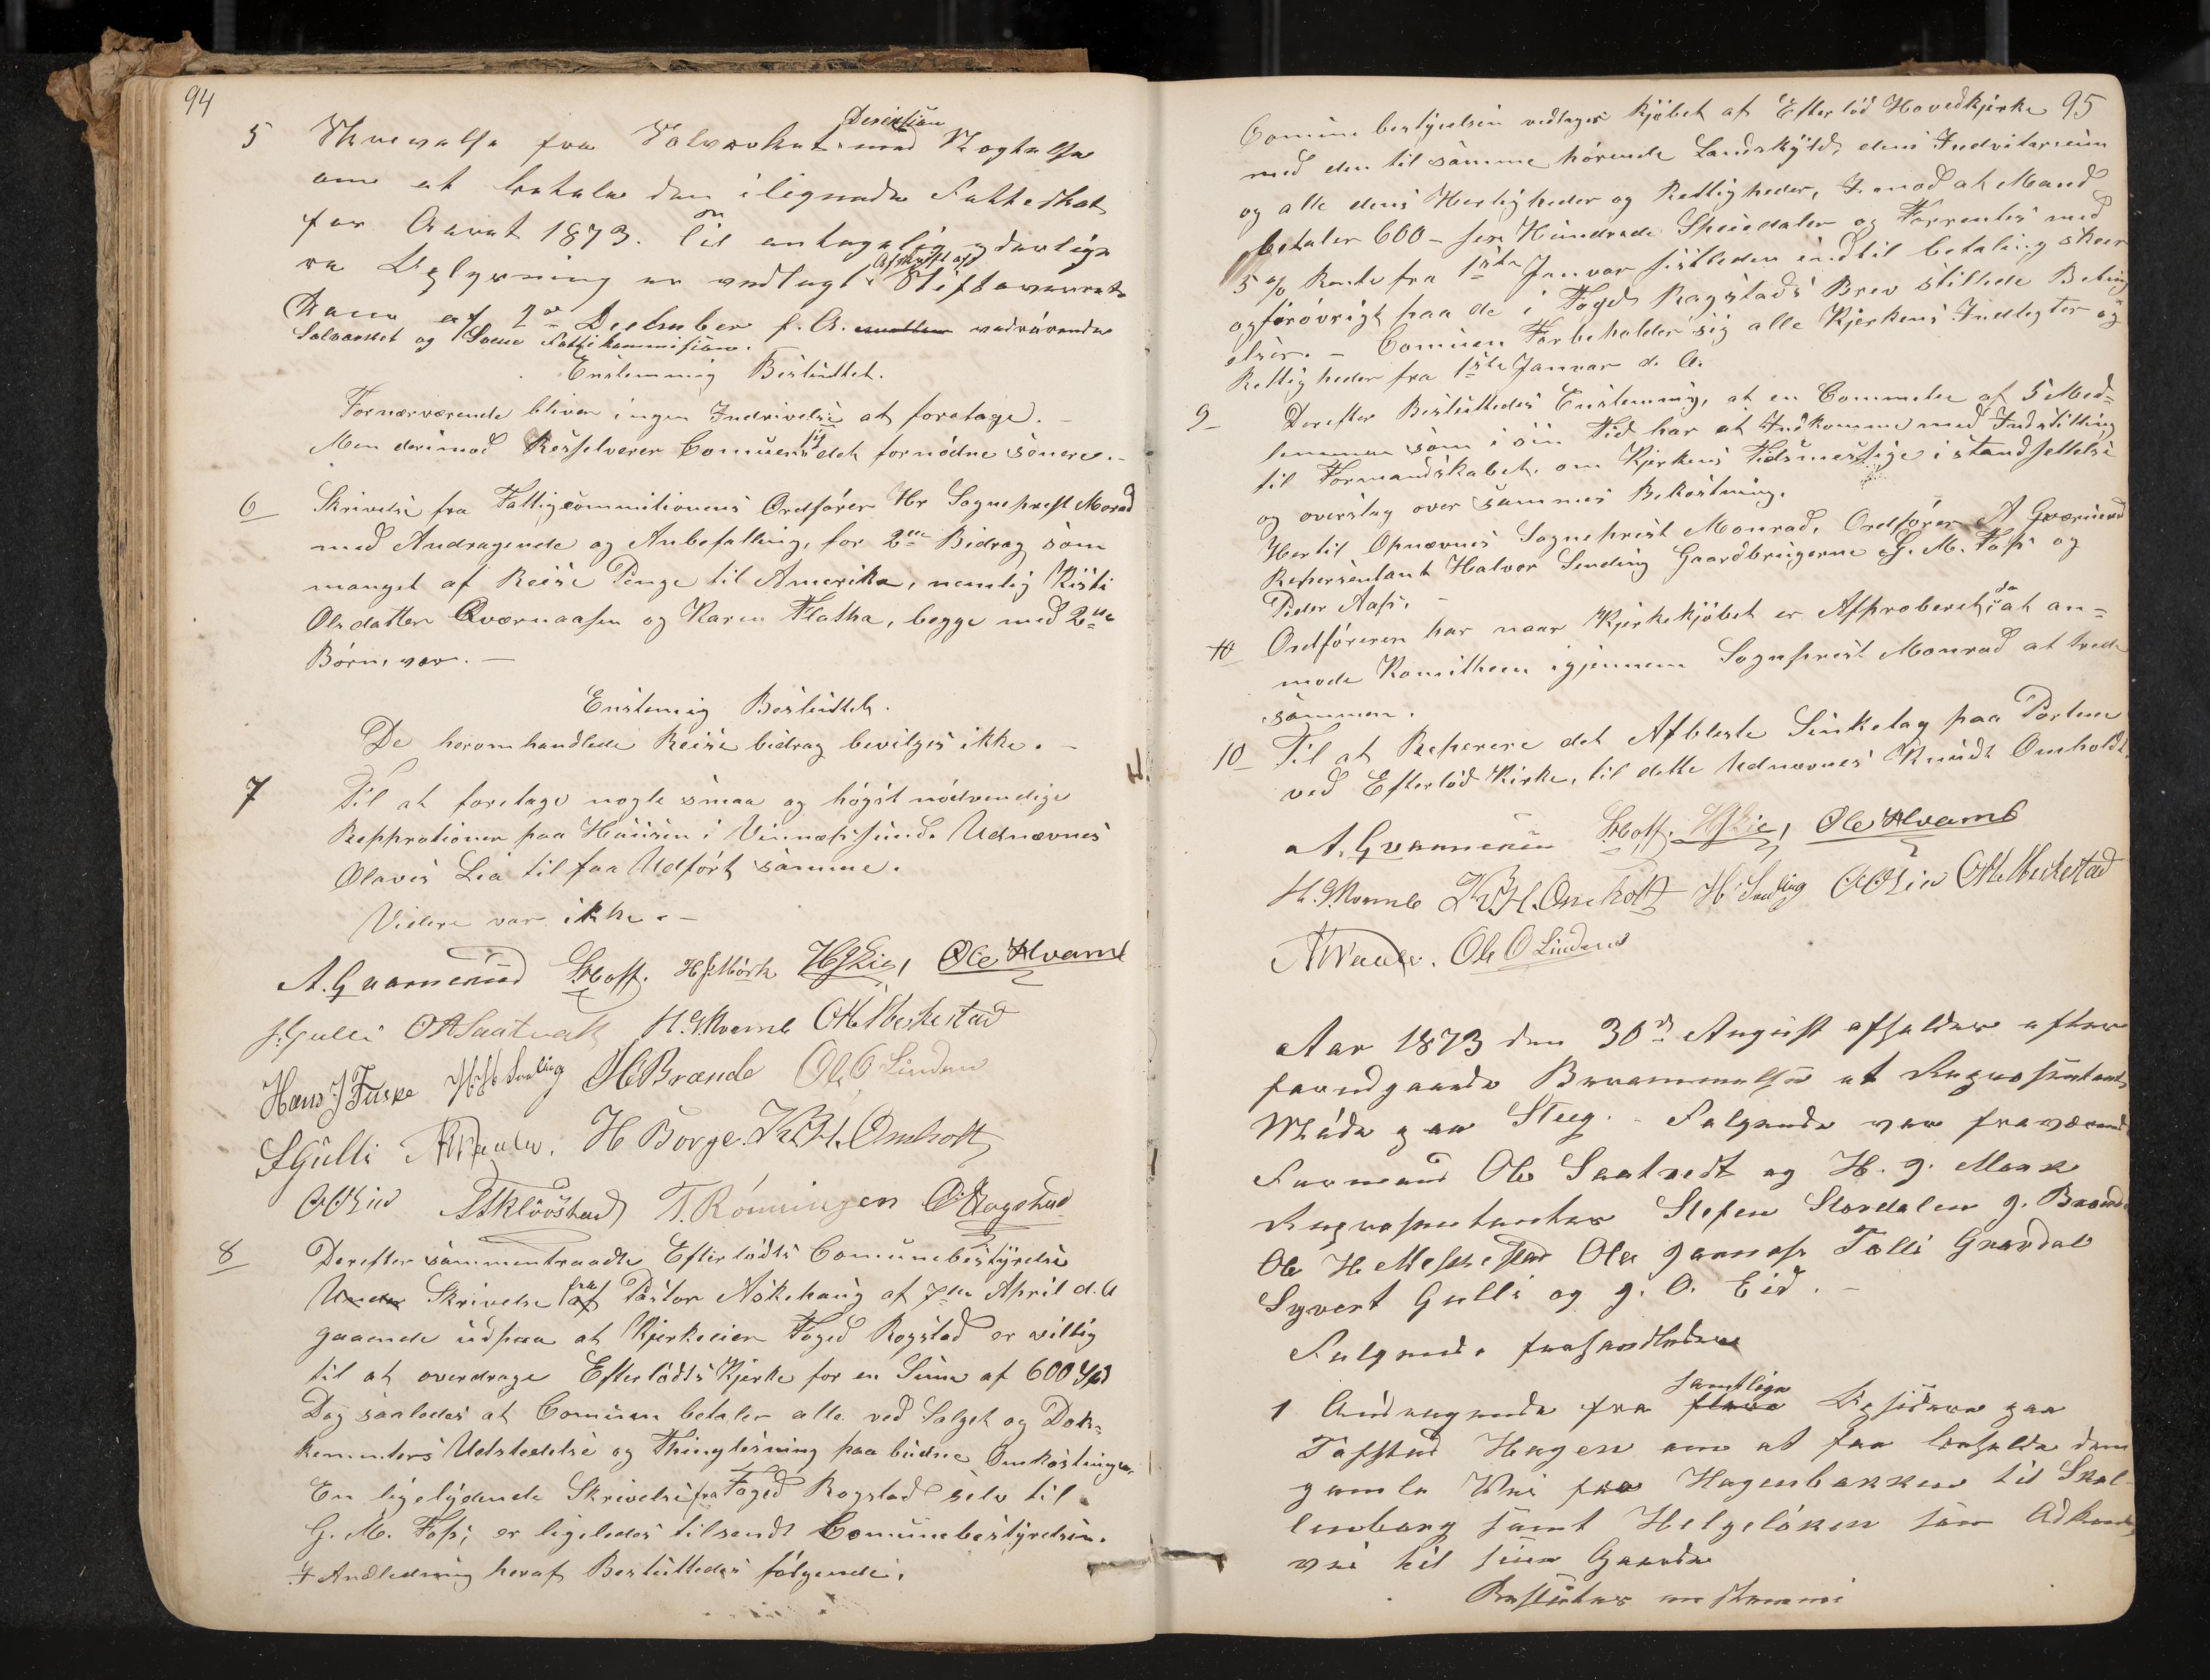 94
5 Skrivelse fra Sølvverkets Direktion med Negtelse
om at betale den ilignede Fattigskat
for Aaret 1873. Til
Oplysning er vedlagt Afskrift af Stiftøverret
Dom af 2den December f. A. vedrørende
Sølvværket og Fattigkommission.
Enstemmig Besluttet.
Fornærværende bliver ingen Indrivelse at foretage. –
Men derimod Resolverer Comunen sig det fornødne senere. –
6 Skrivelse fra Fattigcommitionens Ordfører Hr Sogneprest Monrad
med Andragende og Anbefalling, for 2de Bidrag som
manget af Reise Penge til Amerika, nemlig Kisti
Olsdatter Qværnaasen og Karen Flatha, begge med 2de
Børn, var. –
Enstemig Besluttet.
De heromhandlede Reise bidrag bevilges ikke. –
7 Til at foretage nogle smaa og høgst nødvendige
Repprationer paa Hausen i Vinnæssund. Udnævnes
Olavis Lia til faa Udført samme.
Videre var ikke. –
A. Gvarnerud Hoff. H J Mörk HJLie, Ole Hvamb
J. Gulli OASaatvedt H. G Kvamb OHMeskestad
Hans J Fuske H H Sending HBrænde Ole O Linden
SGulli AWraaler. H Borge. K.H. Omholt
OOLia Skløvstad T. Rönningen O Rogstad
8 Derefter sammentraadte Efterlødts Comunebestyrelse
Under Skrivelse fra af Pastor Nökehaug af 7de April d. A
gaaende udpaa at Kjerkeeier Foged Rogstad er villig
til at overdrage Efterlødts Kjerke for en Sum af 600 Spd
Dog saaledes at Comunen betaler alle ved Salget og Dok=
kementers Udstedelse og Thinglæsning paa budne Omkostninger.
En ligelydende Skrivelse fra Foged Rogstad selv til
G. M. Foss, er ligeledes tilsendt Comunebestyrelsen.
I Andledning heraf Besluttedes følgende.
95
Comune bestyrelsen vedtager Kjøbet af Efterlød Hovedkjerke
med den til samme hørende Landskyld, dens Indvitarium
og alle dens Herligheder og Rettigheder, I mod at Mand
betaler 600 – sex Hundrede Speciedaler og Forrentes med
5 % Rente fra 1ste Januar sistleden indtil betaling skeer
og forövrigt paa de i Foged Ragstads Brev stillede Beting
elser. – Comunen Forbeholder sig alle Kjerkens Indtegter og
Rettigheder fra 1ste Januar d. A.
9 Derefter Besluttedes Enstemmig, at en Commetee af 5 Med=
lemmer som i sin Tid har at Indkomme med Indstilling
til Formandskabet, om Kjerkens Tidsmessige i standsettelse
og overslag over sammes Bekostning.
Hertil Opnævnes Sogneprest Monrad, Ordfører A Gvarnerud
Repersentant Halvor Sending Gaardbrugerne G. M. Foss og
Peder Aass. –
10 Ordføreren har naar Kjerkekjøbet er Afproberet, da at an=
mode Komitheen igjennem Sogneprest Monrad at trede
sammen.
10 Til at Reperere det Afbleste Sinketag paa Porten
ved Efterlöd Kirke, til dette Udnævnes Knudt Omholdt
A. Gvarnerud Hoff. HJLie, Ole Hvamb
H. G Kvamb K.H. Omholt H Sending OOLia OHMeskestad
AWraaler. Ole O Linden
Aar 1873 den 30te August afholdes efter
foregaaende Berammelse et Represintant
Møde paa Steg. – Følgende var fraværende
Formand Ole Saatvedt og H. J. Mørk
Representanter Stefen Stordalen J. Brænde
Ole H Meskestad Ole Tolli Grosdal
Syvert Gulli og J. O. Eid. –
Følgende forhandledes
1 Andragende fra samtlige Opsidere paa
Tofstad Hagen om at faa beholde den
gamle Vei fra Hagenbakken til Skol=
lenborg samt Helgeløken som Adkomst
vei til sine Gaarde
Besluttes enstemmi